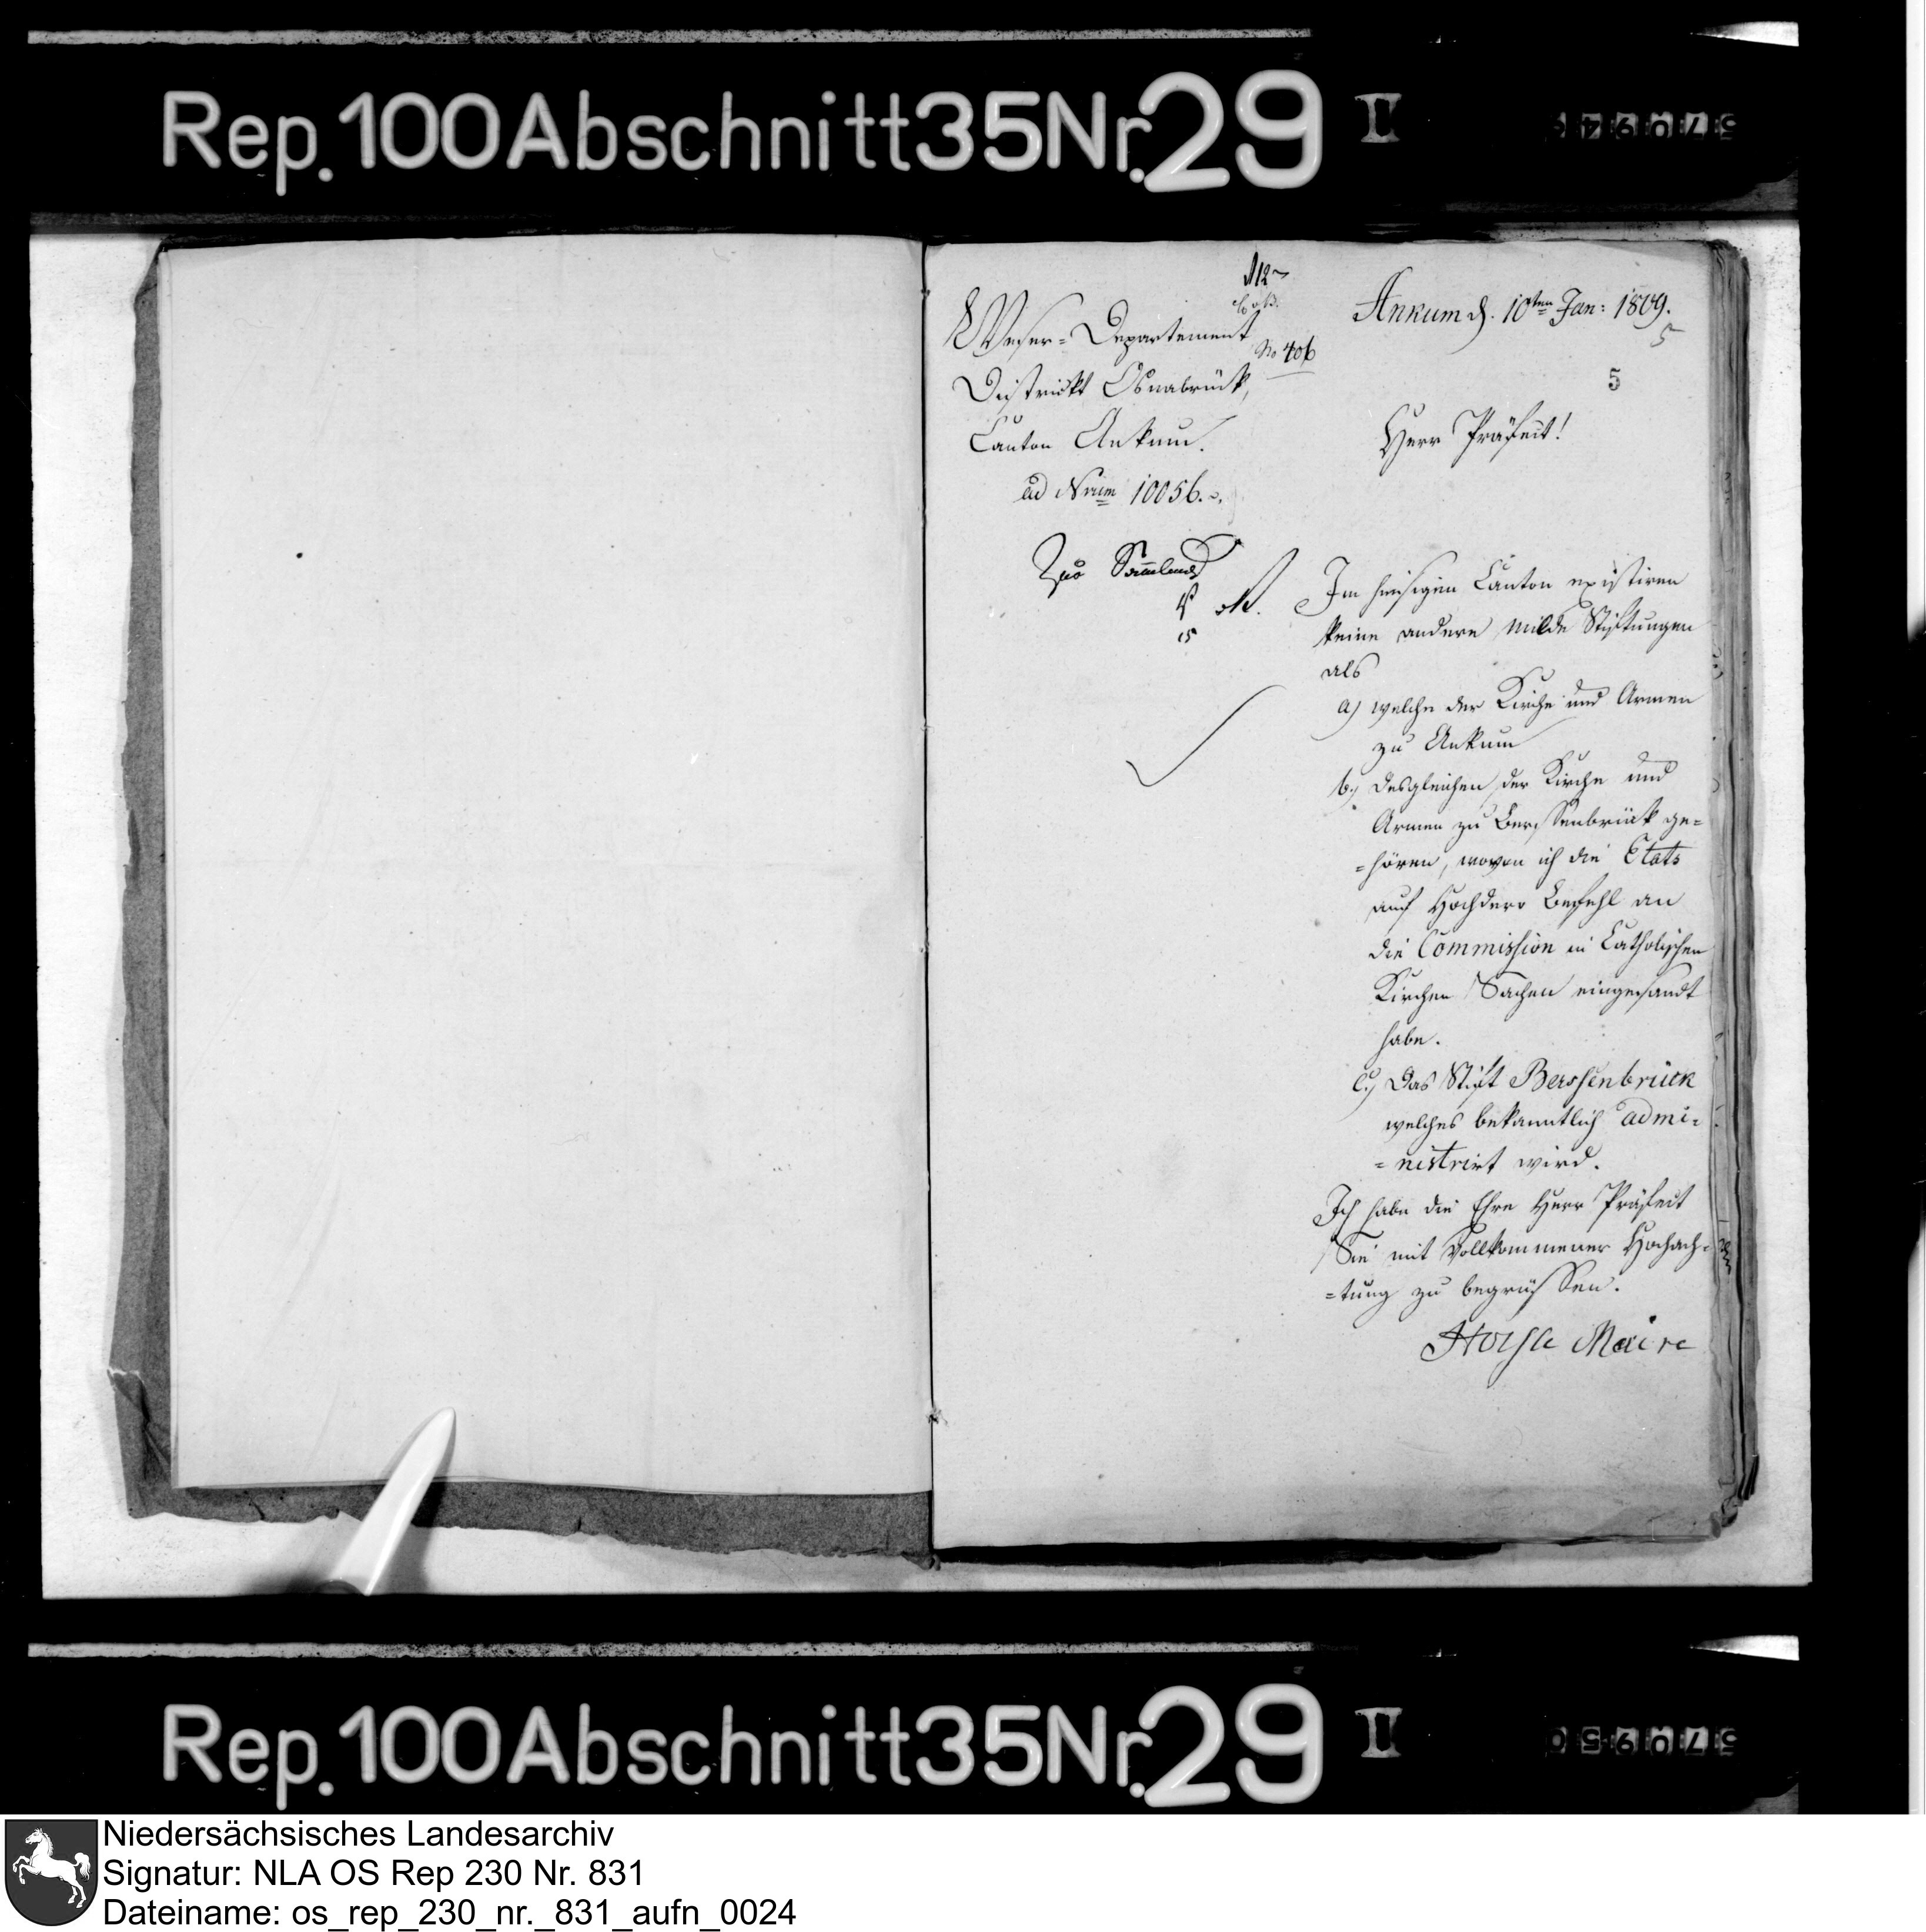 Rep. 100 Abschnitt 35 Nr. 29 I
Weser=Departement
Districkt Osnabrück,
Canton Ankum.
ad Num 10056.
No 406
Ankum d. 10ten Jan: 1809.
5
5
Herr Präfect!
Im hiesigen Canton existiren
keine andere milde Stiftungen
als
a) welche der Kirche und Armen
zu Ankum
b.) desgleichen der Kirche und
Armen zu Berssenbrück ge=
=hören, wovon ich die Etats
auf Hochdero Befehl an
die Commission in Catholischen
Kirchen Sachen eingesandt
habe.
c.) Das Stift Berssenbrück
welches bekanntlich admi=
=nistrirt wird.
Ich habe die Ehre Herr Präfect
Sie mit vollkommener Hochach=
=tung zu begrüssen.
Maire
Rep. 100 Abschnitt 35 Nr. 29 I
Niedersächsisches Landesarchiv
Signatur: NLA OS Rep 230 Nr. 831
Dateiname: os_rep_230_nr._831_aufn_0024